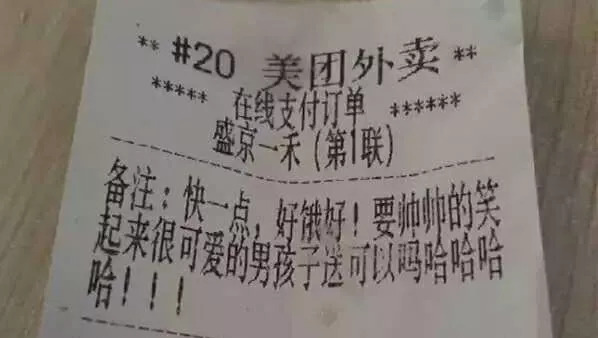 ** #20 美团外卖 **
***** 在线支付订单 ******
盛京一禾(第1联)
备注：快一点，好饿好！要帅帅的笑
起来很可爱的男孩子送可以吗哈哈哈
哈！！！